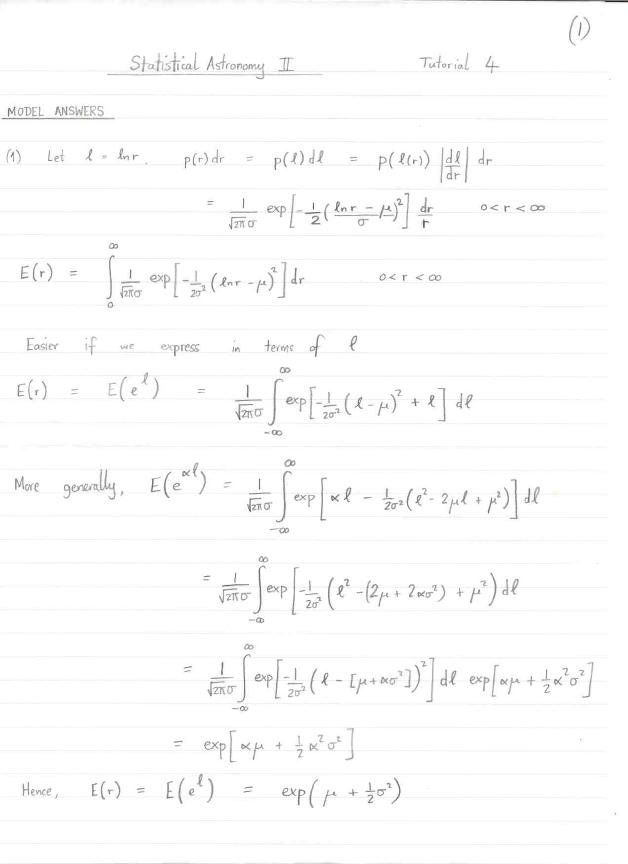 (1)
Statistical Astronomy II Tutorial 4
MODEL ANSWERS
(1) Let l = ln r. p(r) dr = p(l) dl = p(l(r)) |dl/dr| dr
= 1/(√2π σ) exp[-1/2 ((ln r - μ)/σ)²] dr/r 0 < r < ∞
E(r) = ∫₀^∞ 1/(√2π σ) exp[-1/2σ² (ln r - μ)²] dr 0 < r < ∞
Easier if we express in terms of l
E(r) = E(e^l) = 1/(√2π σ) ∫_{-∞}^{∞} exp[-1/2σ² (l - μ)² + l] dl
More generally, E(e^{αl}) = 1/(√2π σ) ∫_{-∞}^{∞} exp[αl - 1/2σ² (l² - 2μl + μ²)] dl
= 1/(√2π σ) ∫_{-∞}^{∞} exp[-1/2σ² (l² - (2μ + 2ασ²) + μ²) dl
= 1/(√2π σ) ∫_{-∞}^{∞} exp[-1/2σ² (l - [μ + ασ²])²] dl exp[αμ + 1/2 α²σ²]
= exp[αμ + 1/2 α²σ²]
Hence, E(r) = E(e^l) = exp(μ + 1/2 σ²)